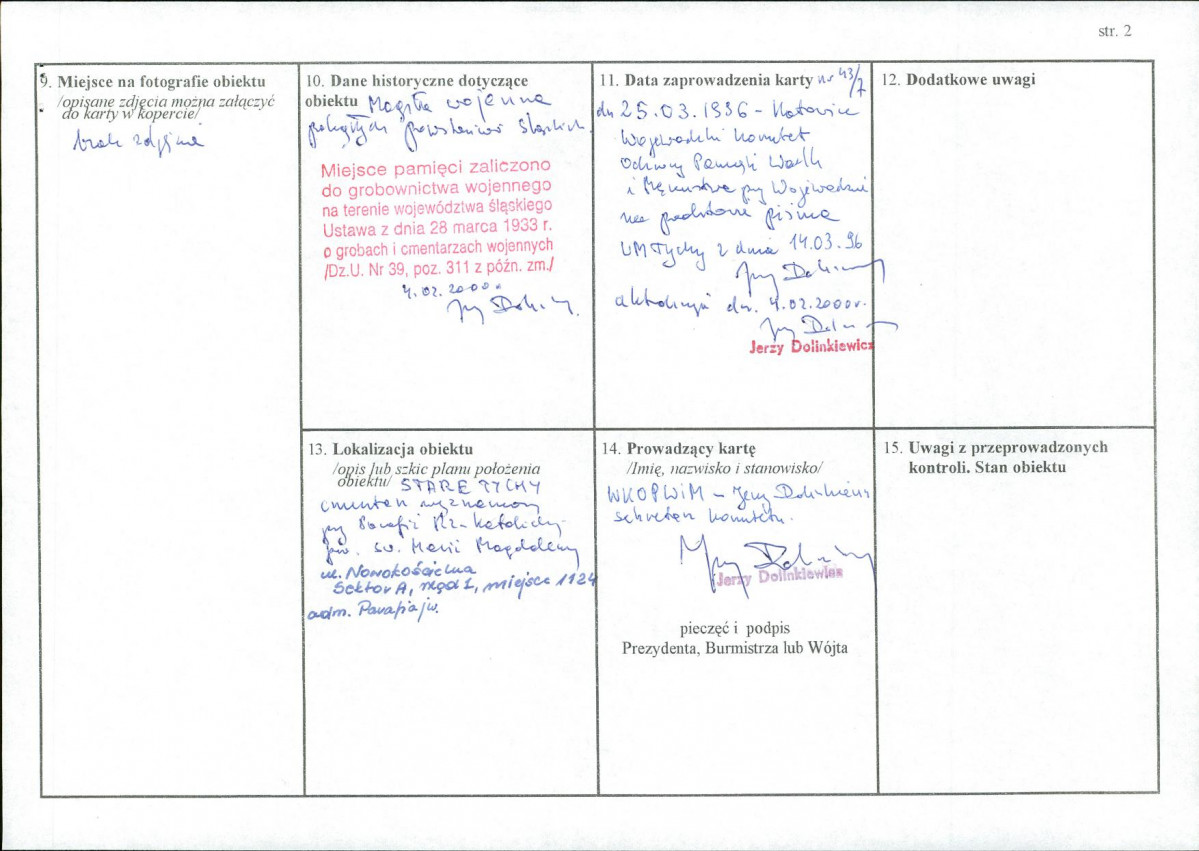 str. 2
9. Miejsce na fotografie obiektu
/opisane zdjęcia można załączyć
do karty w kopercie/
brak zdjęcia
10. Dane historyczne dotyczące
obiektu Mogiła wojenna
poległych powstańców śląskich.
Miejsce pamięci zaliczono
do grobownictwa wojennego
na terenie województwa śląskiego
Ustawa z dnia 28 marca 1933 r.
o grobach i cmentarzach wojennych
/Dz.U. Nr 39, poz. 311 z późn. zm./
4.02.2000r.
11. Data zaprowadzenia karty nr 43/7
dn 25.03.1996 - Katowice
Wojewódzki Komitet
Ochrony Pamięci Walk
i Męczeństwa przy Wojewodzie
na podstawie pisma
UM Tychy z dnia 14.03.96
dn. 4.02.2000r.
Jerzy Dolinkiewicz
12. Dodatkowe uwagi
13. Lokalizacja obiektu
/opis lub szkic planu położenia
obiektu/ STARE TYCHY
cmentarz wyznaniowy
przy Parafii Rz-katolickiej
pw. św. Marii Magdaleny
ul. Nowokościelna
Sektor A, rząd 1, miejsce 1124
adm. Parafia jw.
14. Prowadzący kartę
/Imię, nazwisko i stanowisko/
WKOPWiM - Jerzy Dolinkiewicz
sekretarz komitetu.
Jerzy Dolinkiewicz
pieczęć i podpis
Prezydenta, Burmistrza lub Wójta
15. Uwagi z przeprowadzonych
kontroli. Stan obiektu